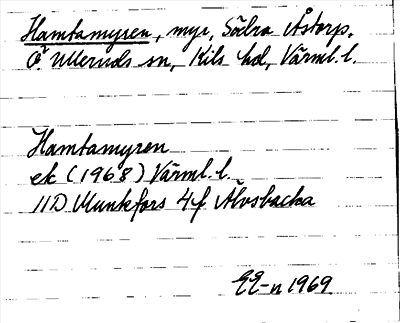 Hamtamyren, myr, Södra Åstorp,
Ö. Ulleruds sn, Kils hd, Värml. l.
Hamtamyren
ek (1968) Värml. l.
11D Munkfors 4f Älvsbacka
EE-n 1969